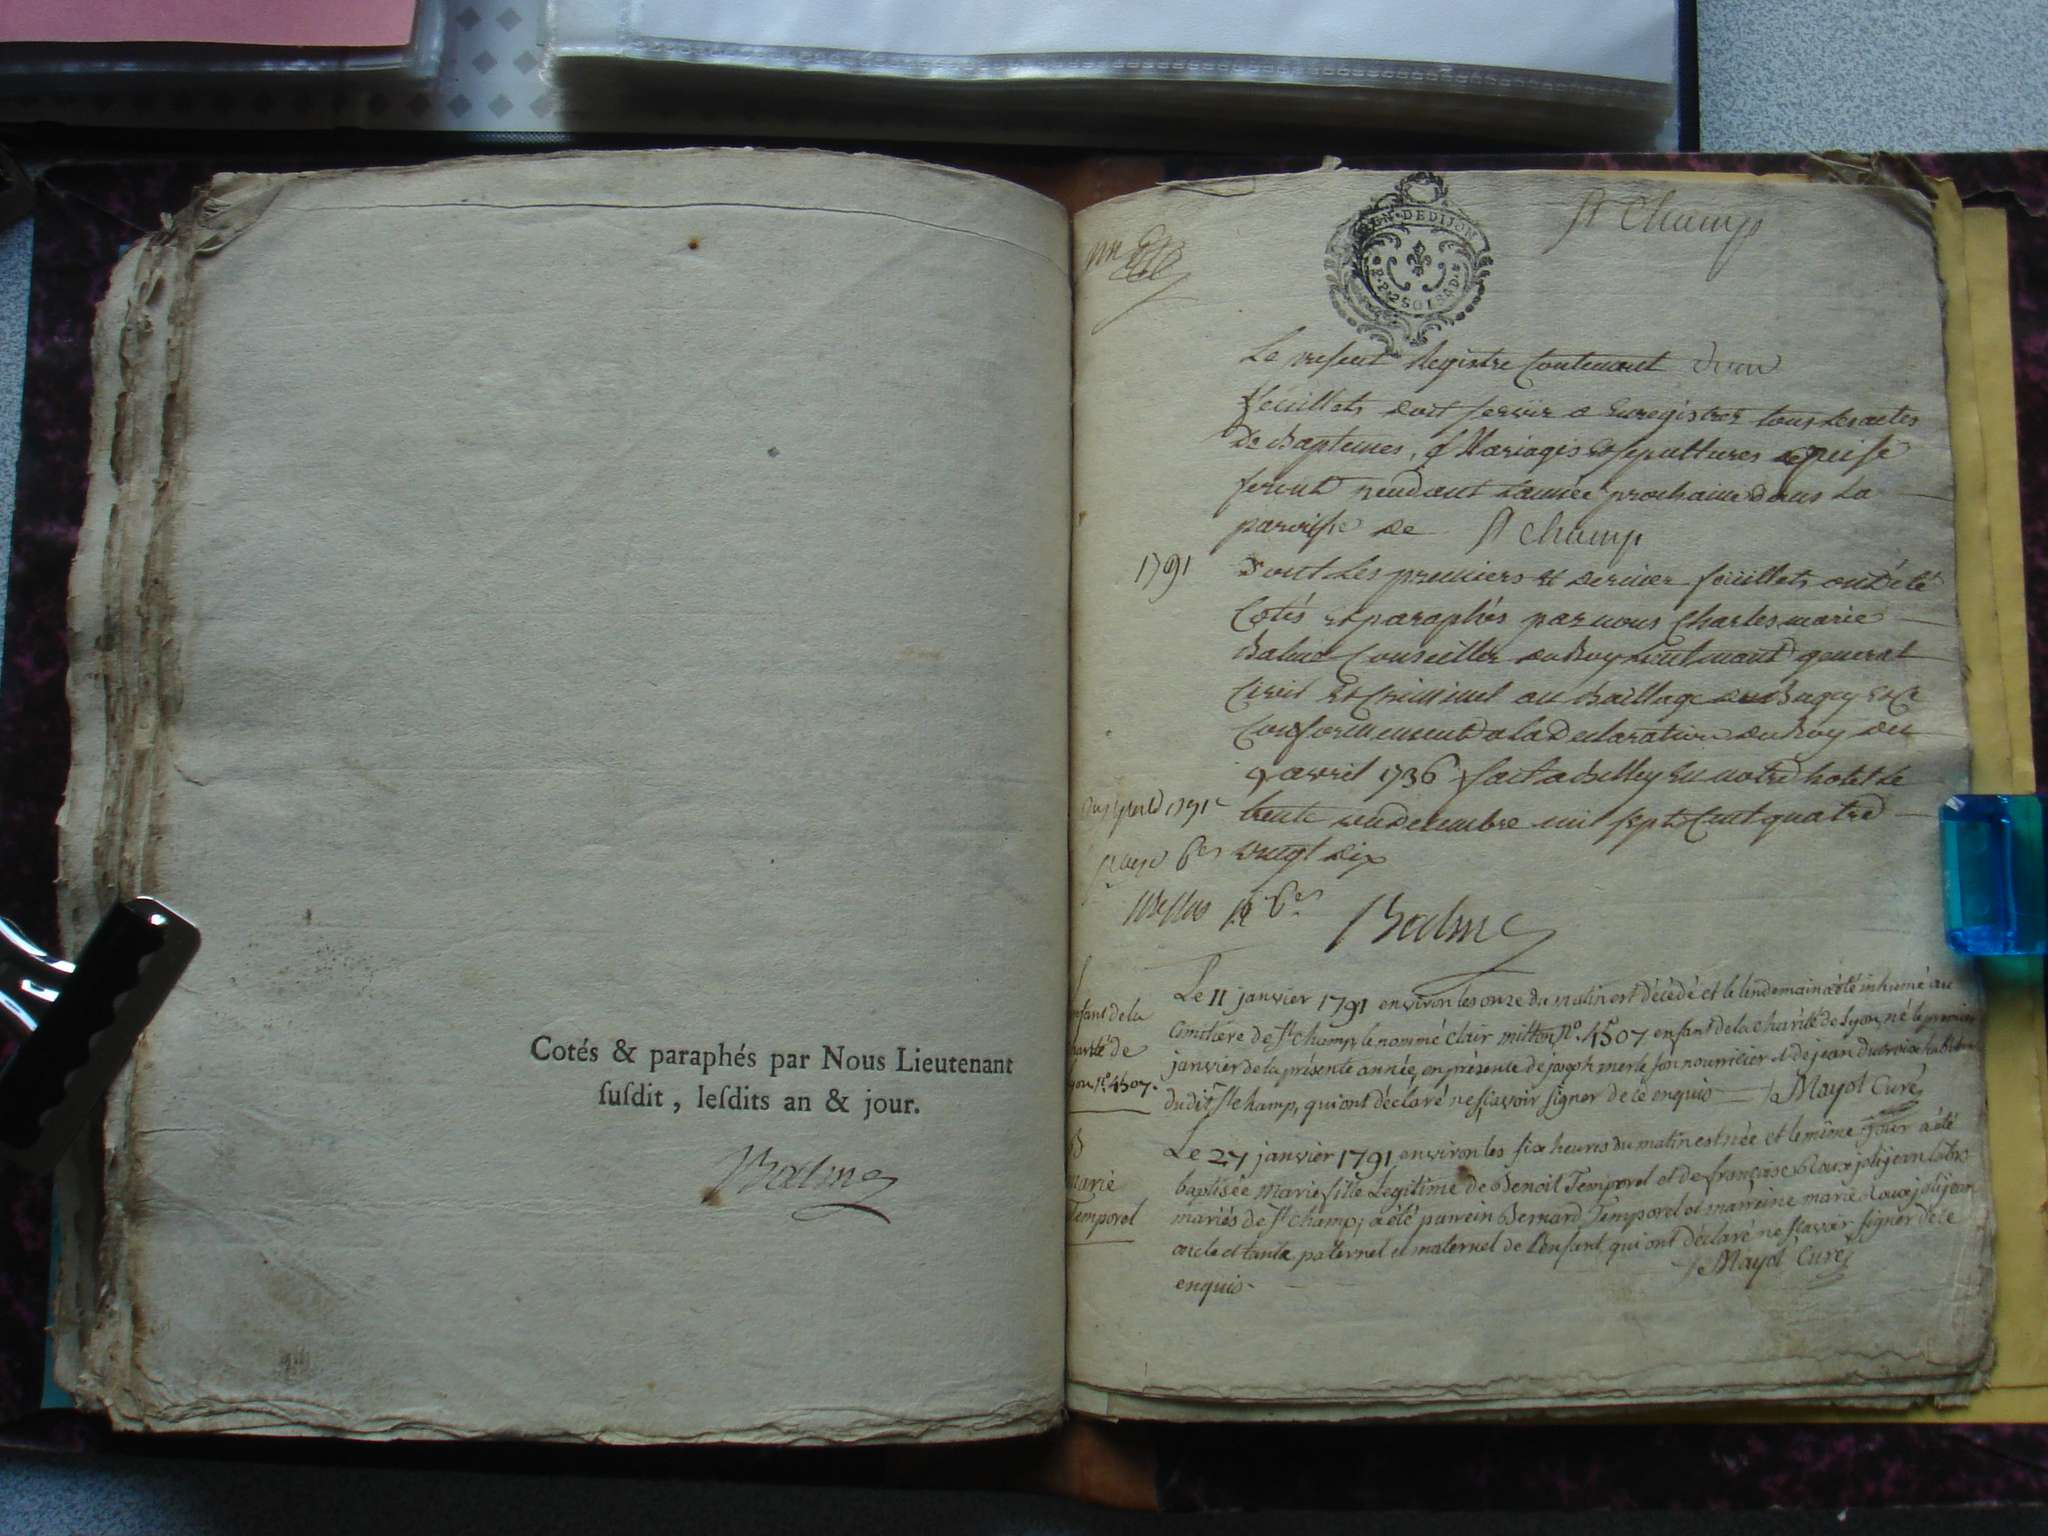 Cotés & paraphés par Nous Lieutenant
ſuſdit, leſdits an & jour.
Balme
GEN·DEDIJON
St Champ
Le present Registre Contenant
feuillets doit servir a Enregistrer tous les actes
de Baptemes, Mariages et sepultures qui se
feront pendant L'année prochaine dans La
paroisse de St Champ
1791
Dont Les premiers et dernier feüillets ont été
Cotés et paraphés par nous Charles marie
Balme Conseiller du Roy Lieutenant general
Civil et Criminel au Baillage du Bugey
Conformement a la Declaration du Roy du
9 avril 1736 fait a Belley En notre hotel Le
trente decembre mil sept Cent quatre
vingt dix
Balme
enfant de la
charité de
Lyon n°. 4507.
Le 11 janvier 1791 environ les onze du matin est décédé et le lendemain a été inhumé au
Cimitière de St champ, le nommé clair mitton n°. 4507 enfant de la charité de Lyon, né le premier
janvier de la présente année, en présence de joseph merle son nourricier et de jean dutroix
dudit St champ, qui ont déclaré ne sçavoir signer de ce enquis Mayot Curé
B
Marie
Temporel
Le 27 janvier 1791 environ les six heures du matin est née et le même jour a été
baptisée Marie fille Légitime de Benoit Temporel et de françoise Roux joli jean
mariés de St champ, a été parrein Bernard Temporel et marreine marie Roux joli jean
oncle et tante paternel et maternel de l'enfant, qui ont déclaré ne sçavoir signer de ce
enquis- Mayot Curé